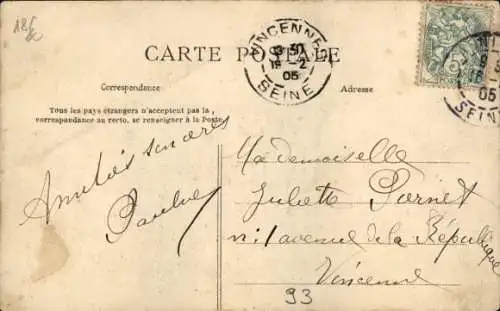 18 f
CARTE POSTALE
VINCENNES
13 50
16 - 2
05
SEINE
16 - 2
05
SEINE
Correspondance
Adresse
Tous les pays étrangers n'acceptent pas la
correspondance au recto, se renseigner à la Poste
Amitiés sincères
Mademoiselle
Juliette Pornet
avenue de la République
Vincennes
93